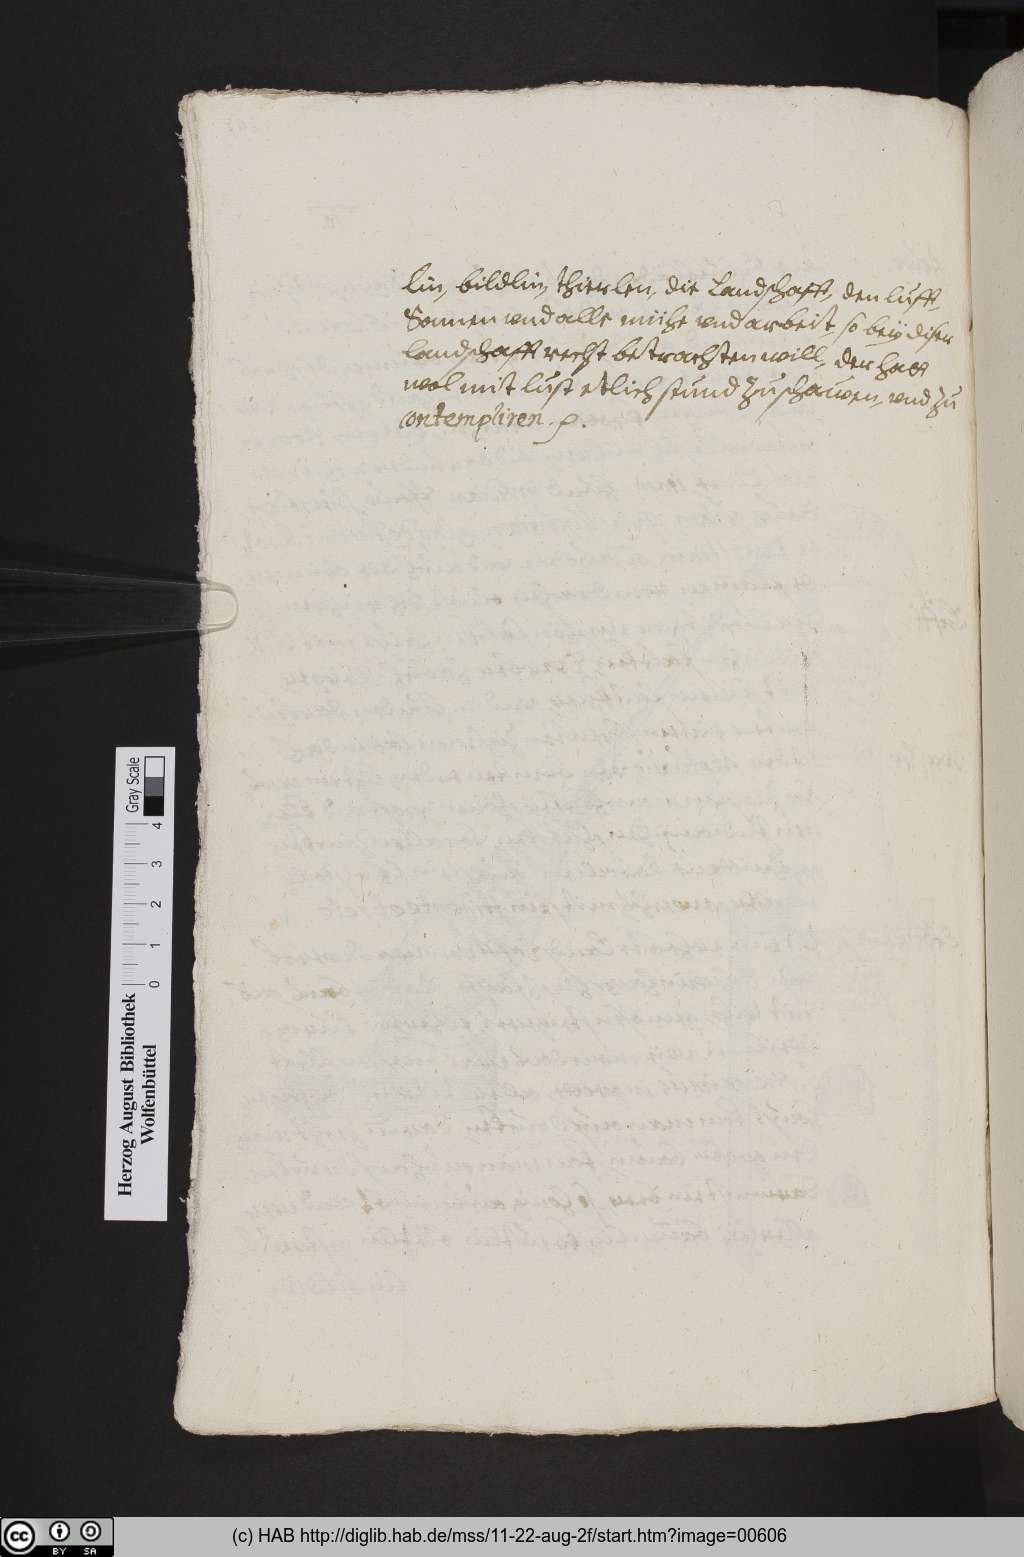 lin, bildlin, thierlen, die Landschafft, den lufft,
Sonnen vnd alle mühe vnd arbeit, so beÿ diser
landschafft recht betrachten will, der hatt
wol mit lust etlich stund zuschauwen, vnd zu
contempliren.
Gray Scale
0 1 2 3 4
Herzog August Bibliothek
Wolfenbüttel
cc BY SA
(c) HAB http://diglib.hab.de/mss/11-22-aug-2f/start.htm?image=00606